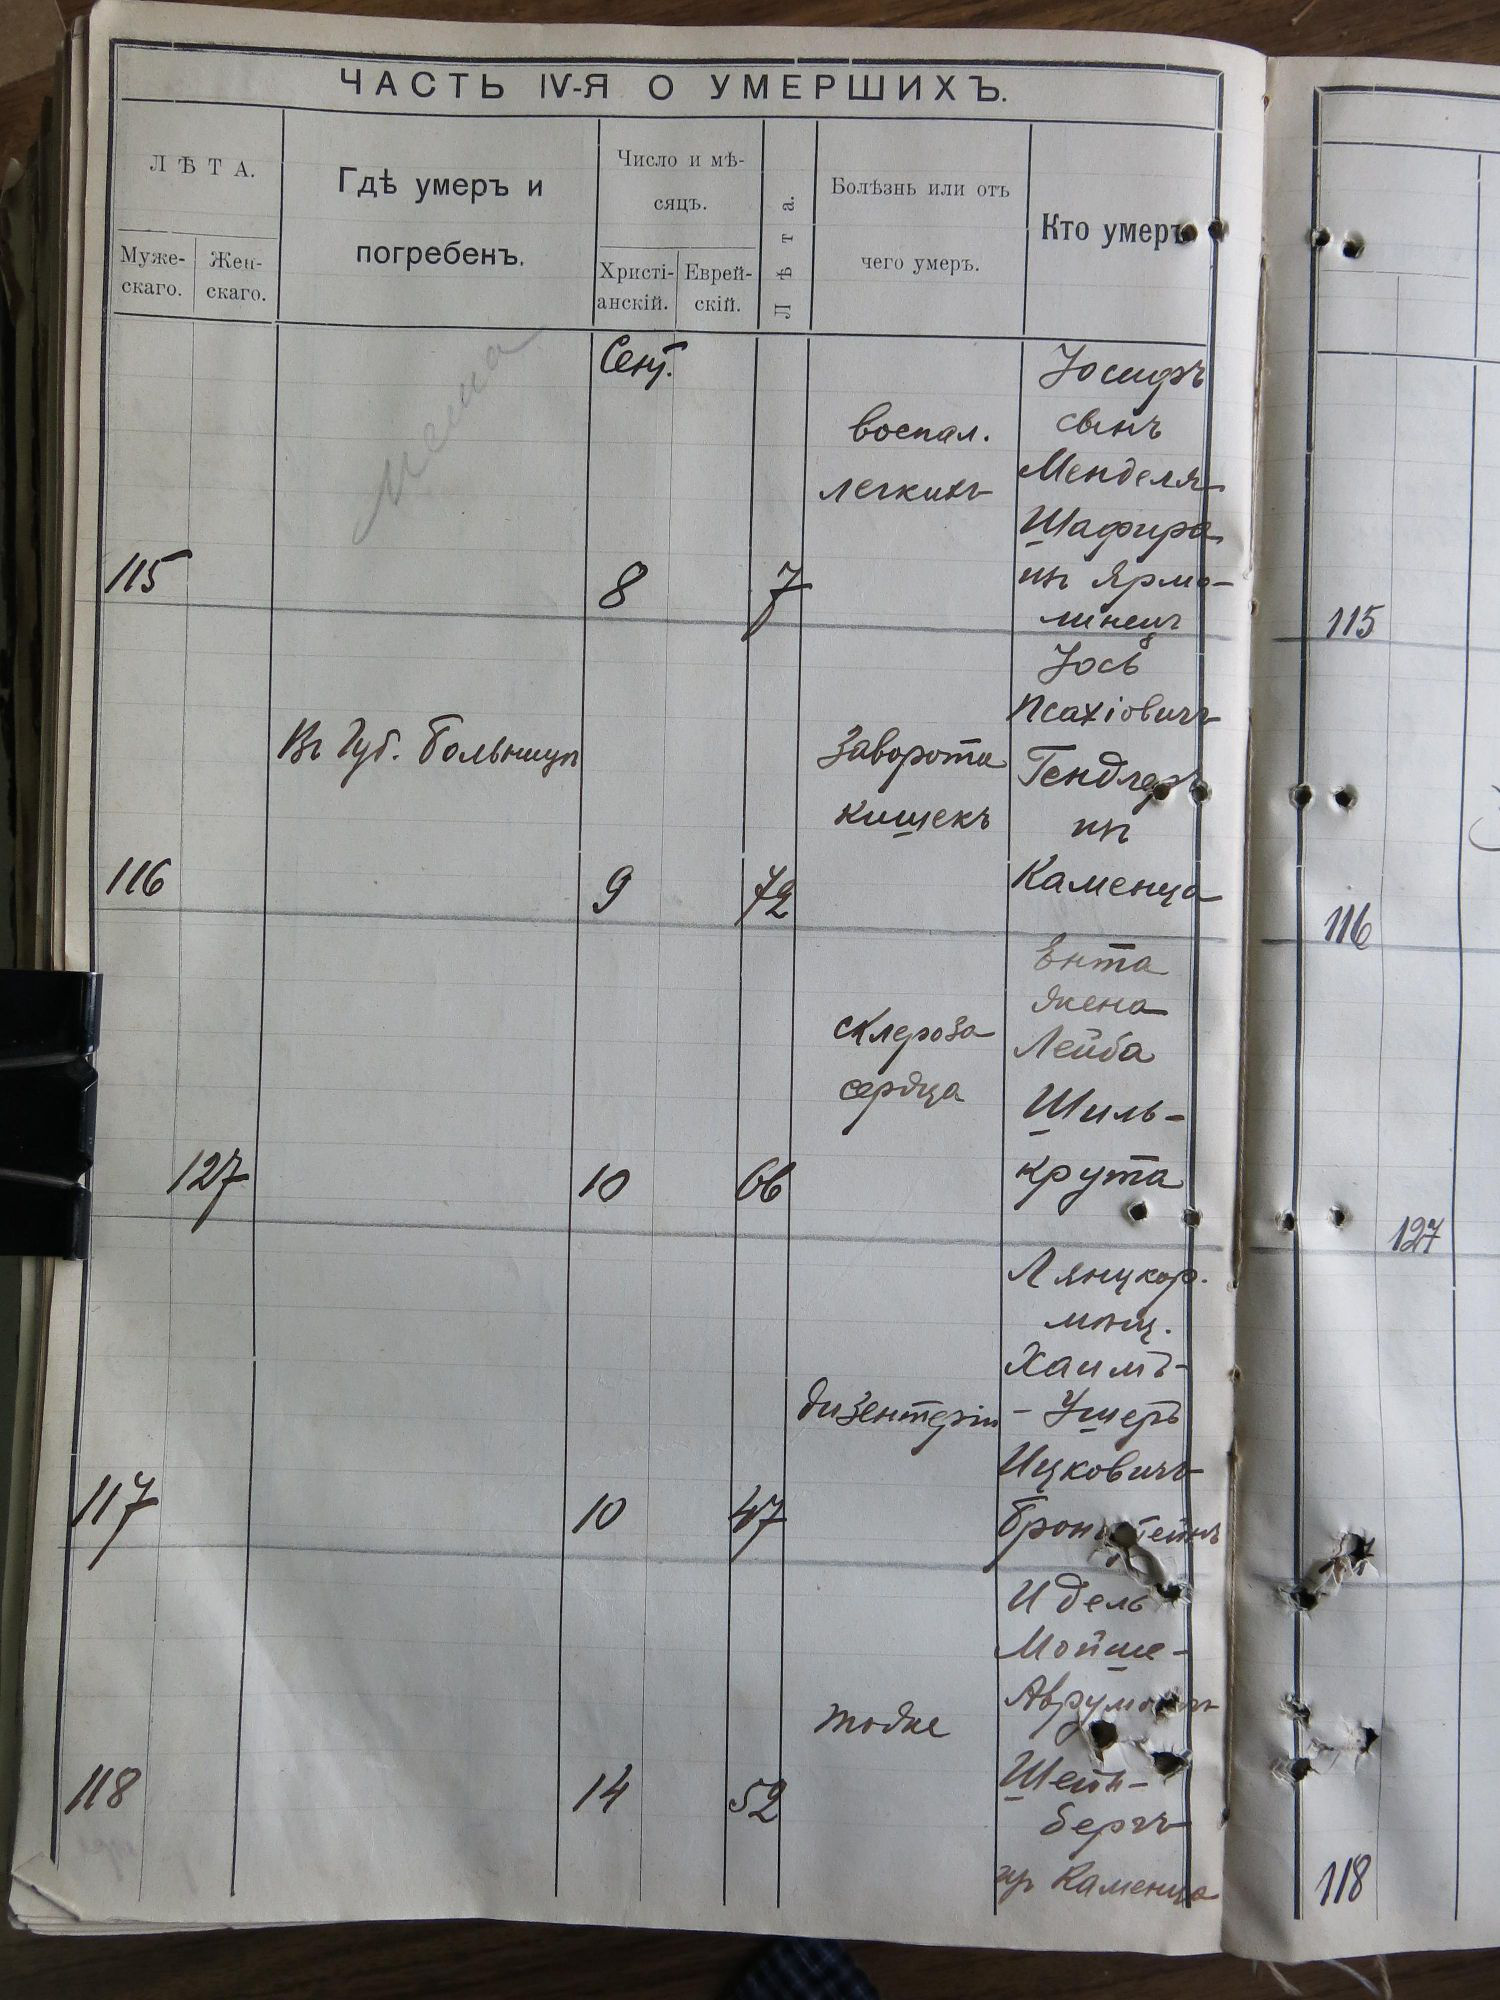 ЧАСТЬ IV-Я О УМЕРШИХЪ.
ЛѢТА.
Муже-
скаго.
Жен-
скаго.
Гдѣ умеръ и
погребенъ.
Число и мѣ-
сяцъ.
Христі-
анскій.
Еврей-
скій.
Лѣта.
Болѣзнь или отъ
чего умеръ.
Кто умеръ
Сент.
115
8
7
воспал.
легкихъ
Іосифъ
сынъ
Менделя
Шафира
изъ Ярмо-
линецъ
115
116
Въ Губ. больницѣ
9
72
Заворота
кишекъ
Іось
Псахіовичъ
Гендлеръ
изъ
Каменца
116
127
10
66
склероза
сердца
Ента
жена
Лейба
Шиль-
крута
127
117
10
47
дизентеріи
Лянцкор.
мѣщ.
Хаимъ-
- Ушеръ
Ицковичъ
118
14
52
тоже
Идель
Мойше-
Шейн-
бергъ
Каменца
118